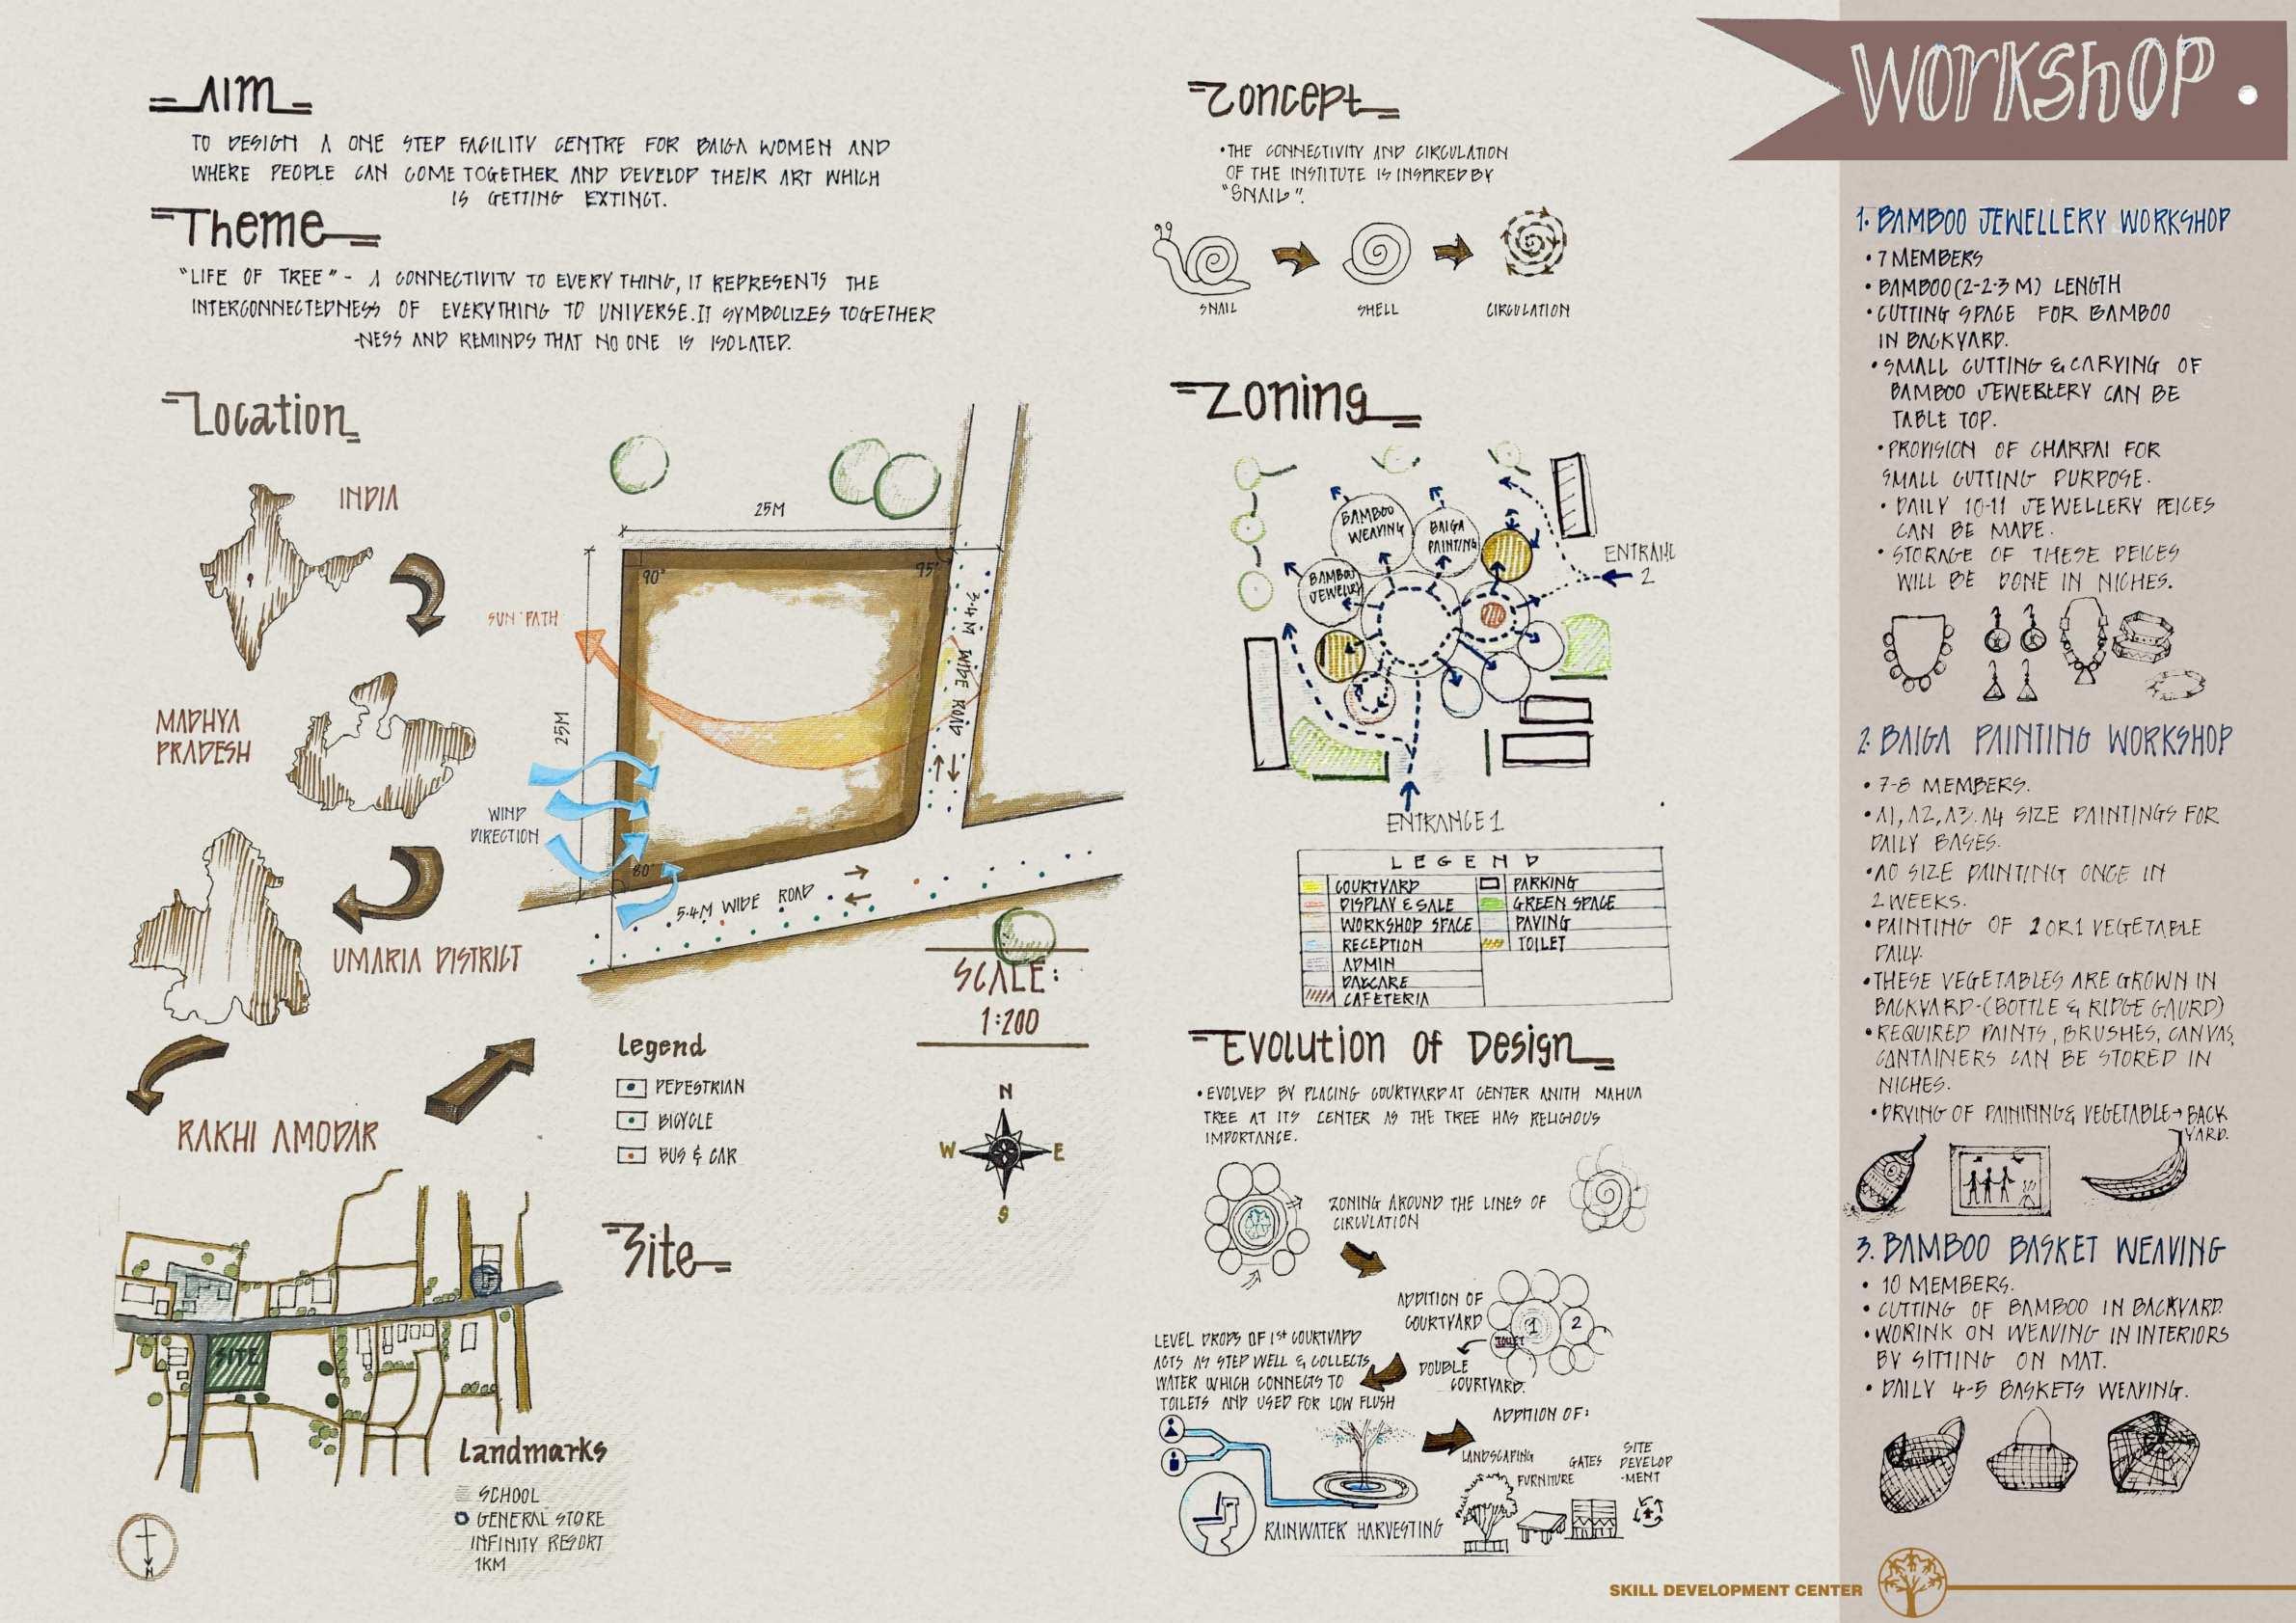 Aim
TO DESIGN A ONE STEP FACILITY CENTRE FOR BAIGA WOMEN AND
WHERE PEOPLE CAN COME TOGETHER AND DEVELOP THEIR ART WHICH
IS GETTING EXTINCT.
Theme
"LIFE OF TREE" - A CONNECTIVITY TO EVERY THING, IT REPRESENTS THE
INTERCONNECTEDNESS OF EVERYTHING TO UNIVERSE. IT SYMBOLIZES TOGETHER
-NESS AND REMINDS THAT NO ONE IS ISOLATED.
Location
INDIA
MADHYA
PRADESH
UMARIA DISTRICT
RAKHI AMODAR
25M
25M
90°
95°
80°
SUN PATH
WIND
DIRECTION
3.4 M WIDE ROAD
5.4M WIDE ROAD
SCALE:
1:200
Legend
PEDESTRIAN
BICYCLE
BUS & CAR
N
W
E
S
Site
SITE
Landmarks
SCHOOL
GENERAL STORE
INFINITY RESORT
1KM
N
Concept
•THE CONNECTIVITY AND CIRCULATION
OF THE INSTITUTE IS INSPIRED BY
"SNAIL".
SNAIL
SHELL
CIRCULATION
Zoning
BAMBOO
WEAVING
BAIGA
PAINTING
BAMBOO
JEWELLRY
2
ENTRANCE 1
LEGEND
COURTYARD
DISPLAY & SALE
WORKSHOP SPACE
RECEPTION
ADMIN
DAYCARE
CAFETERIA
PARKING
GREEN SPACE
PAVING
TOILET
Evolution of Design
•EVOLVED BY PLACING COURTYARD AT CENTER ANITH MAHUA
TREE AT ITS CENTER AS THE TREE HAS RELIGIOUS
IMPORTANCE.
ZONING AROUND THE LINES OF
CIRCULATION
ADDITION OF
COURTYARD
1
2
TOILET
DOUBLE
COURTYARD.
LEVEL DROPS OF 1st COURTYARD
ACTS AS STEP WELL & COLLECTS
WATER WHICH CONNECTS TO
TOILETS AND USED FOR LOW FLUSH
ADDITION OF:
LANDSCAPING
FURNITURE
GATES
SITE
DEVELOP
-MENT
RAINWATER HARVESTING
WORKSHOP
1. BAMBOO JEWELLERY WORKSHOP
• 7 MEMBERS
• BAMBOO (2-2.3 M) LENGTH
• CUTTING SPACE FOR BAMBOO
IN BACKYARD.
• SMALL CUTTING & CARVING OF
BAMBOO JEWELLERY CAN BE
TABLE TOP.
• PROVISION OF CHARPAI FOR
SMALL CUTTING PURPOSE.
• DAILY 10-11 JEWELLERY PEICES
CAN BE MADE.
• STORAGE OF THESE PEICES
WILL BE DONE IN NICHES.
2. BAIGA PAINTING WORKSHOP
• 7-8 MEMBERS.
• A1, A2, A3, A4 SIZE PAINTINGS FOR
DAILY BASES.
• A0 SIZE PAINTING ONCE IN
2 WEEKS.
• PAINTING OF 2 OR 1 VEGETABLE
DAILY.
• THESE VEGETABLES ARE GROWN IN
BACKYARD-(BOTTLE & RIDGE GAURD)
• REQUIRED PAINTS, BRUSHES, CANVAS,
CANTAINERS CAN BE STORED IN
NICHES.
• DRYING OF PAININNG & VEGETABLE→BACK
YARD.
3. BAMBOO BASKET WEAVING
• 10 MEMBERS.
• CUTTING OF BAMBOO IN BACKYARD.
• WORINK ON WEAVING IN INTERIORS
BY SITTING ON MAT.
• DAILY 4-5 BASKETS WEAVING.
SKILL DEVELOPMENT CENTER